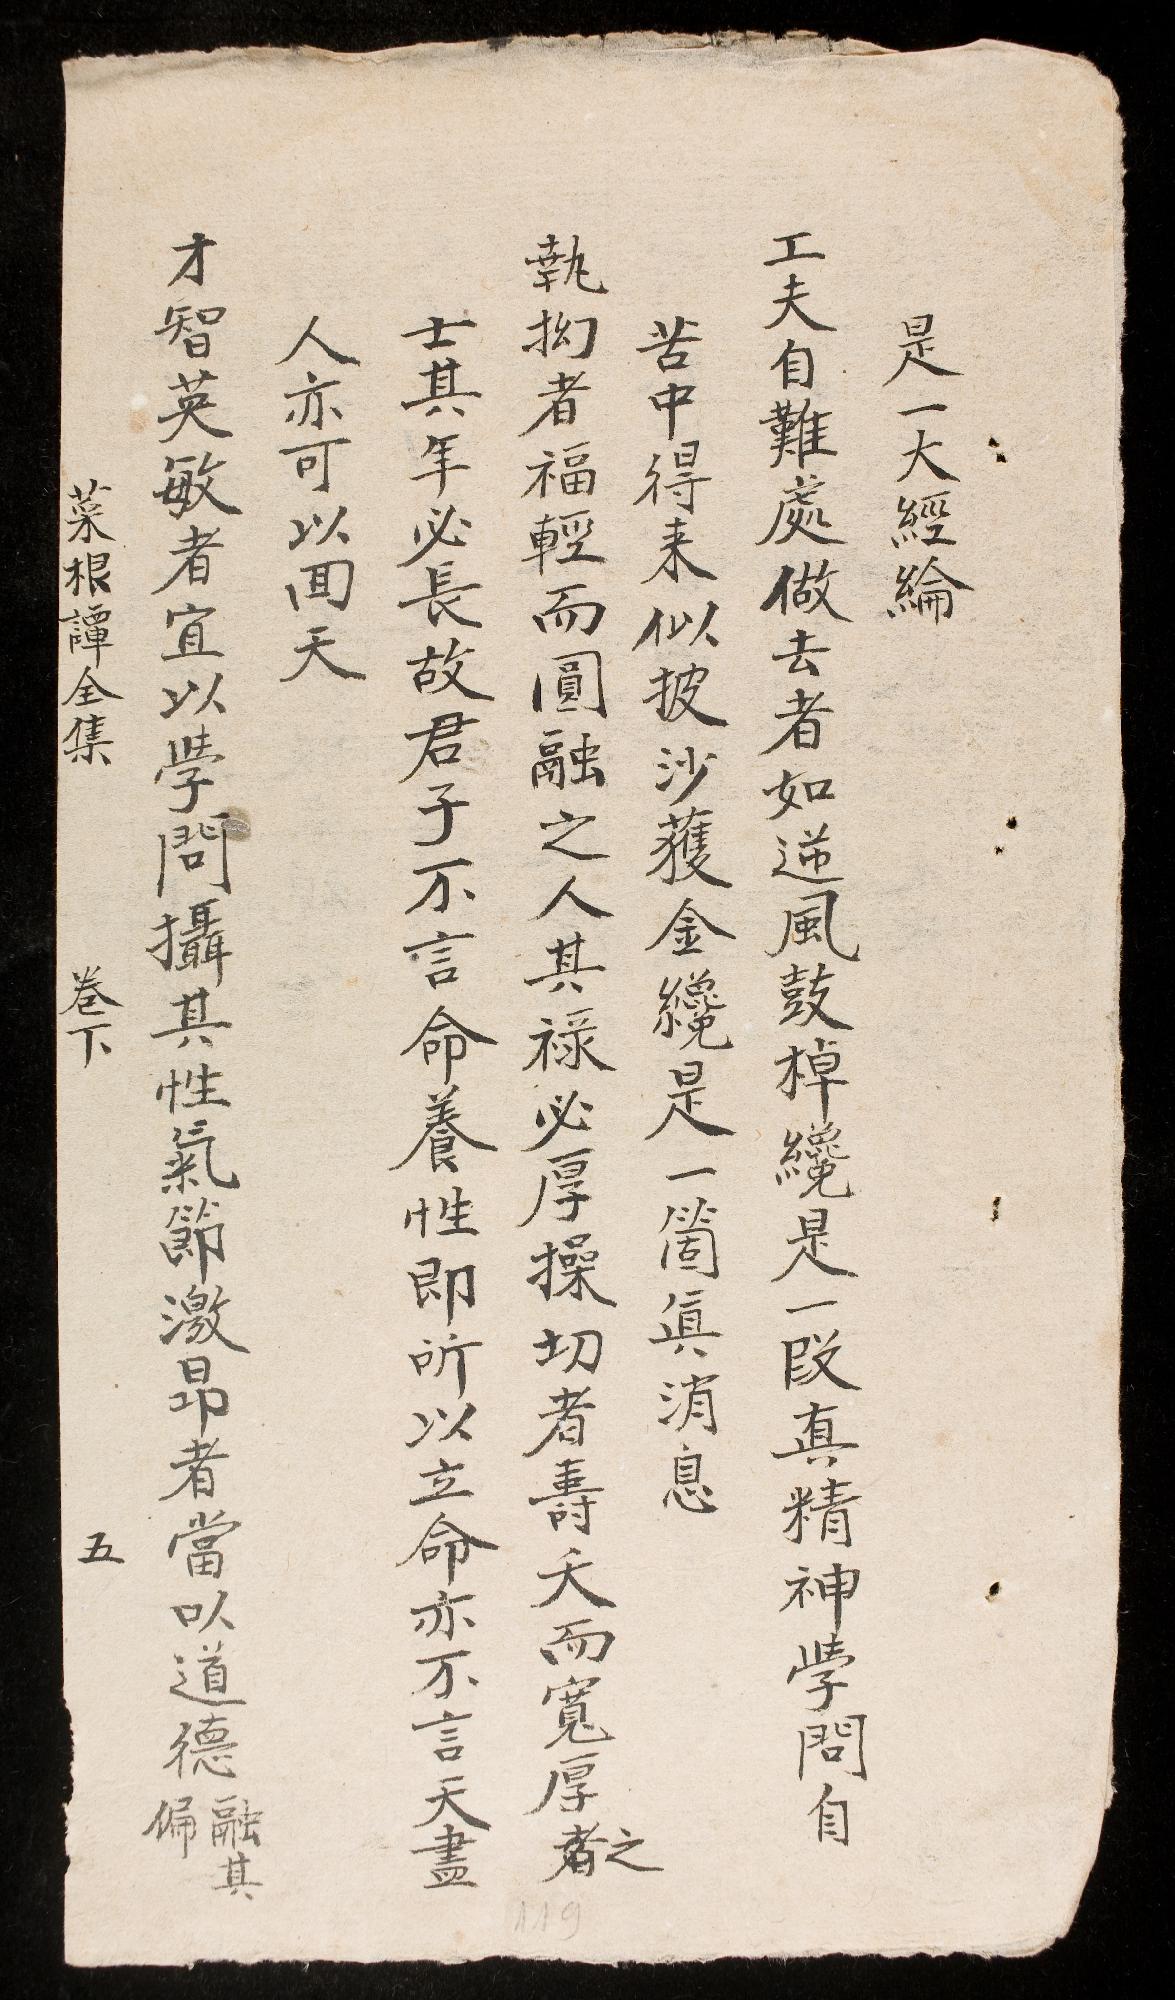 是一大經綸
工夫自難處做去者如逆風鼓棹纔是一段真精神學問自
苦中得来似披沙獲金纔是一箇眞消息
執拗者福輕而圓融之人其祿必厚操切者壽夭而寬厚者之
士其年必長故君子不言命養性即所以立命亦不言天盡
人亦可以回天
才智英敏者宜以學問攝其性氣節激昂者當以道德融其
偏
菜根譚全集 卷下 五
119